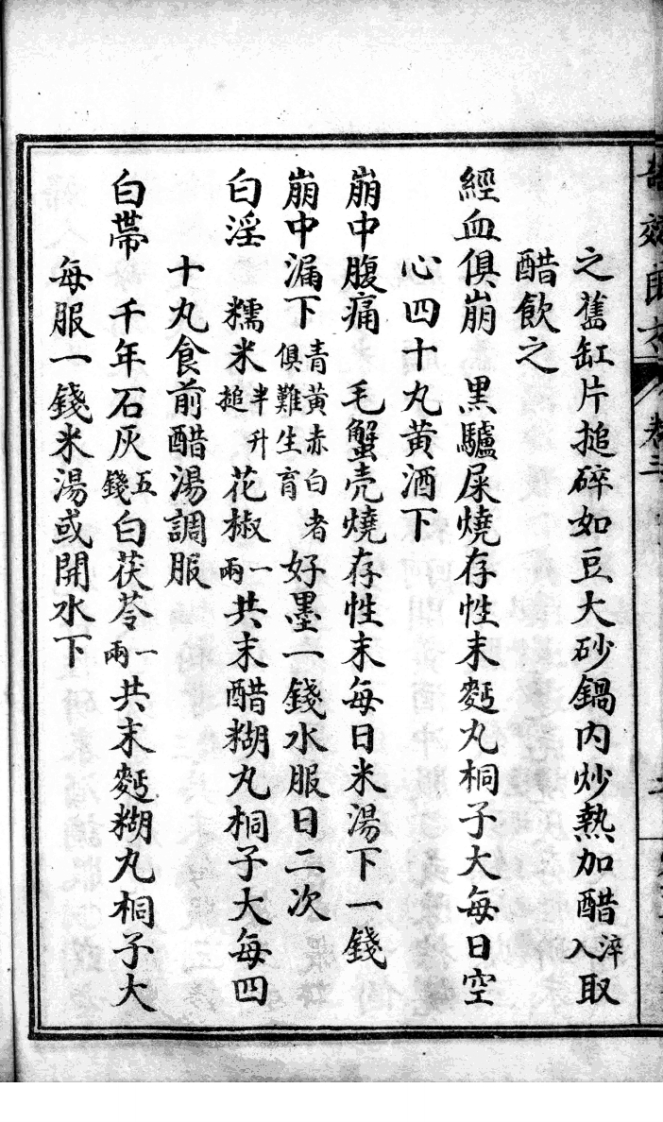 效
卷三
之舊缸片搥碎如豆大砂鍋內炒熱加醋淬入取
醋飲之
經血俱崩 黑驢屎燒存性末麪丸桐子大每日空
心四十丸黃酒下
崩中腹痛 毛蟹壳燒存性末每日米湯下一錢
崩中漏下青黃赤白者俱難生育好墨一錢水服日二次
白淫 糯米半升搥花椒一兩共末醋糊丸桐子大每四
十丸食前醋湯調服
白帯 千年石灰五錢白茯苓一兩共末麪糊丸桐子大
每服一錢米湯或開水下